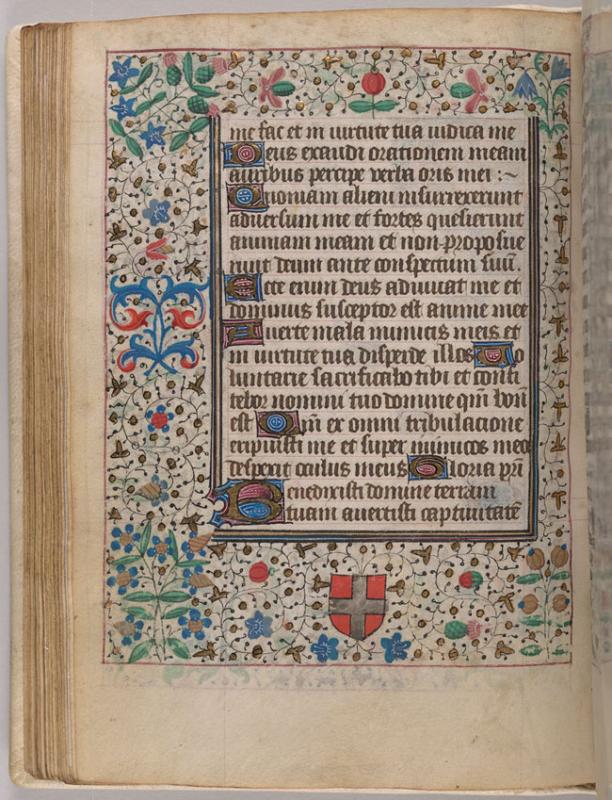 me fac et in uirtute tua iudica me
Deus exaudi orationem meam
auribus percipe verba oris mei :~
Quoniam alieni insurrexerunt
aduersum me et fortes quesierunt
animam meam et non proposue
runt deum ante conspectum suū.
Ecce enim deus adiuuat me et
dominus susceptor est anime mee
Auerte mala inimicis meis et
in uirtute tua disperde illos Uo
luntarie sacrificabo tibi et confi
tebor nomini tuo domine qm̄ bonū
est Qm̄ ex omni tribulacione
eripuisti me et super inimicos meo
despexit oculus meus Gloria pr̄i
Benedixisti domine terram
tuam auertisti captiuitatē